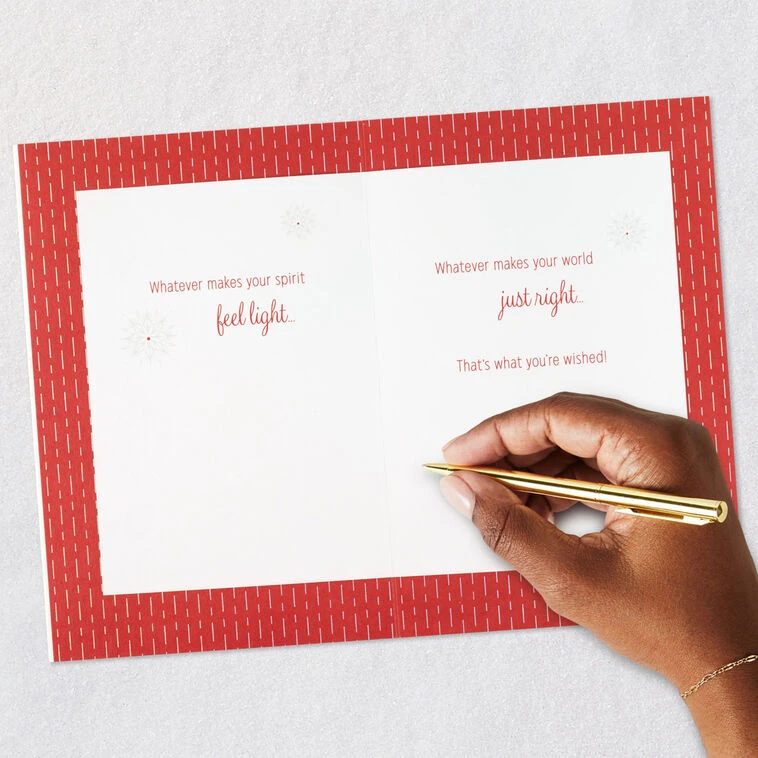 Whatever makes your spirit
feel light...
Whatever makes your world
just right...
That's what you're wished!